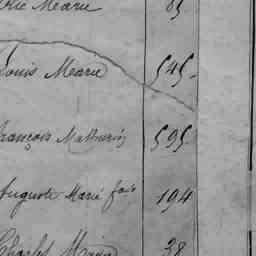 Marie 85
Louis Marie 545.
François Mathurin 595.
Auguste Marie fois 194
Charles 38